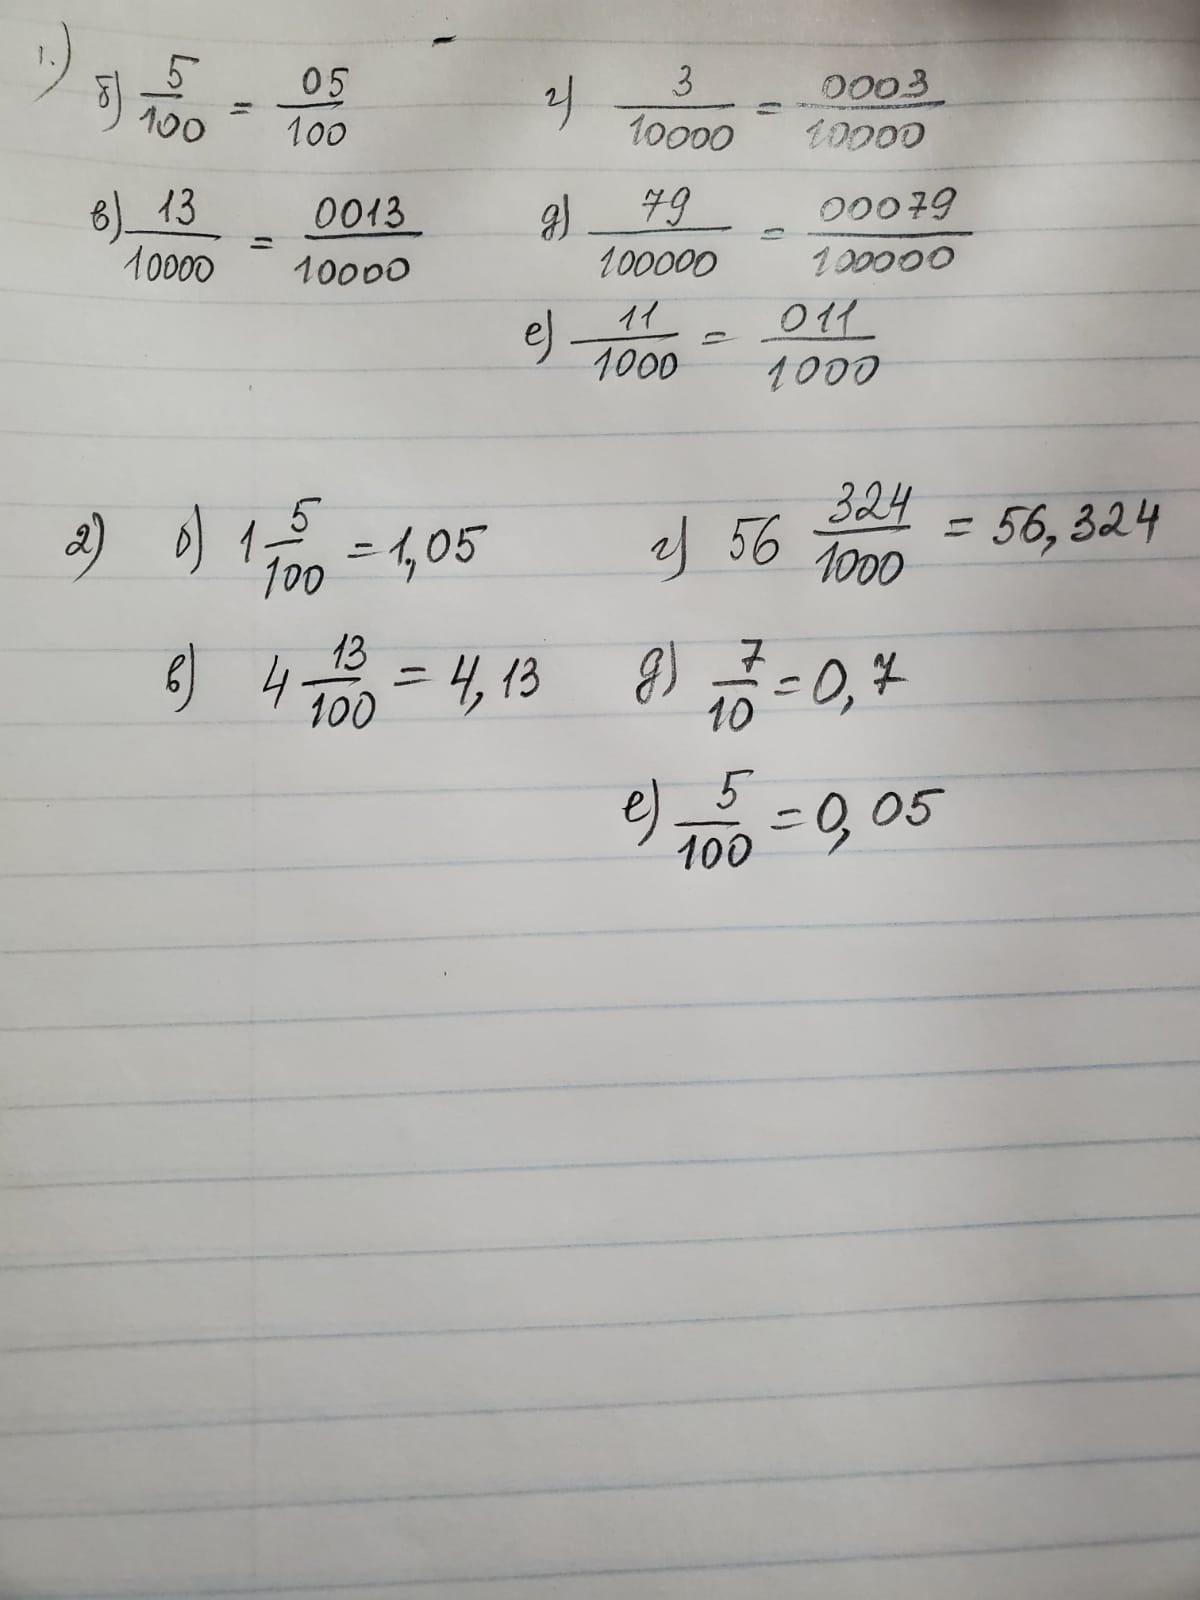 1.)
б) 5/100 = 05/100
г) 3/10000 = 0003/10000
в) 13/10000 = 0013/10000
д) 79/100000 = 00079/100000
е) 11/1000 = 011/1000
2) б) 1 5/100 = 1,05
г) 56 324/1000 = 56,324
в) 4 13/100 = 4,13
д) 7/10 = 0,7
е) 5/100 = 0,05